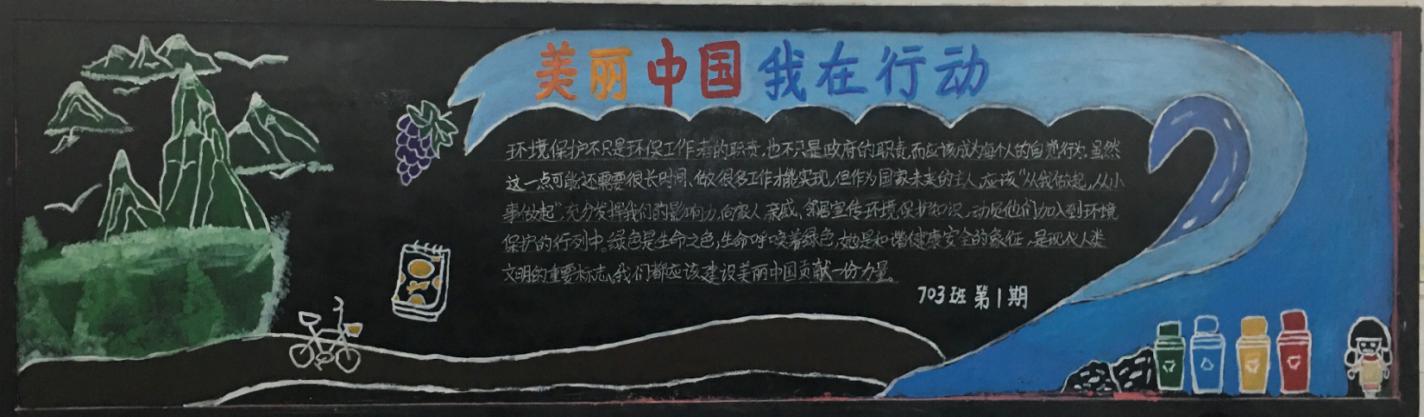 美丽中国 我在行动
环境保护不只是环保工作者的职责,也不只是政府的职责,而应该成为每个人的自觉行为,虽然
这一点可能还需要很长时间、做很多工作才能实现,但作为国家未来的主人,应该“从我做起,从小
事做起”,充分发挥我们的影响力,向家人、亲戚、邻居宣传环境保护知识,动员他们加入到环境
保护的行列中,绿色是生命之色,生命呼唤着绿色,她是和谐健康安全的象征,是现代人类
文明的重要标志,我们都应该建设美丽中国贡献一份力量。
703班 第1期